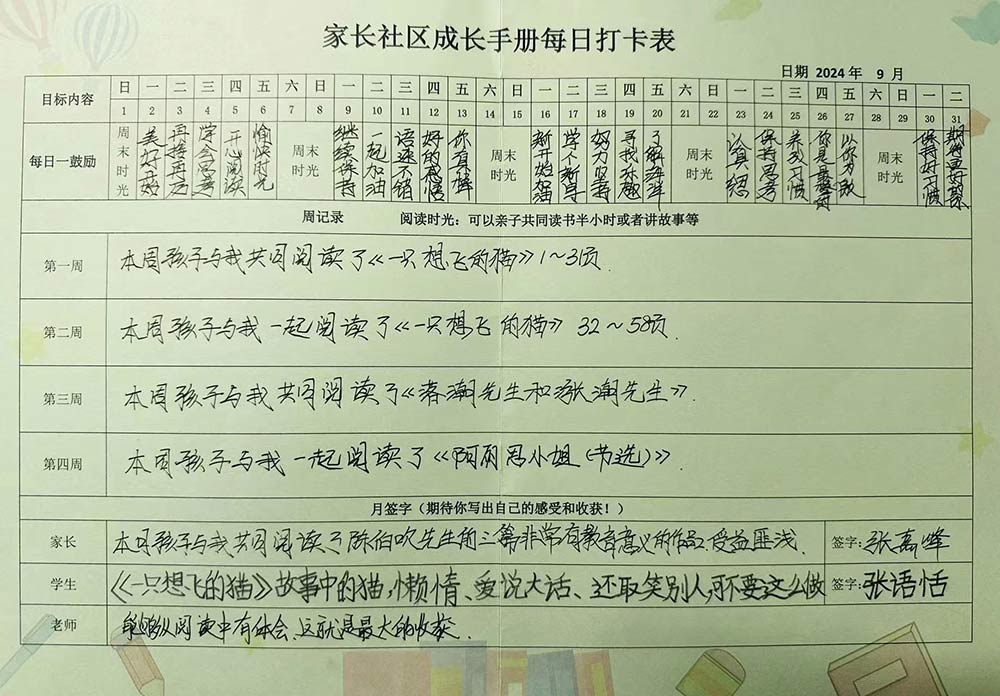 家长社区成长手册每日打卡表
日期 2024年 9 月
目标内容 日 一 二 三 四 五 六 日 一 二 三 四 五 六 日 一 二 三 四 五 六 日 一 二 三 四 五 六 日 一 二
1 2 3 4 5 6 7 8 9 10 11 12 13 14 15 16 17 18 19 20 21 22 23 24 25 26 27 28 29 30 31
每日一鼓励
周末时光
美好开始
开心阅读
愉快时光
周末时光
继续保持
一起加油
语速不错
你有棒
周末时光
新开始加油
努力
寻找乐趣
周末时光
认真
保持思考
养成习惯
以你为傲
周末时光
保持好习惯
周记录 阅读时光：可以亲子共同读书半小时或者讲故事等
第一周 本周孩子与我共同阅读了《一只想飞的猫》1~3页.
第二周 本周孩子与我一起阅读了《一只想飞的猫》 32~58页.
第三周 本周孩子与我共同阅读了《落潮先生和涨潮先生》.
第四周 本周孩子与我一起阅读了《阿丽思小姐(节选)》.
月签字（期待你写出自己的感受和收获！）
家长 本月孩子与我共同阅读了陈伯吹先生的三篇非常有教育意义的作品.受益匪浅. 签字:张嘉峰
学生 《一只想飞的猫》故事中的猫,懒惰、爱说大话、还取笑别人,可不要这么做 签字:张语恬
老师 能够从阅读中有体会、这就是最大的收获.